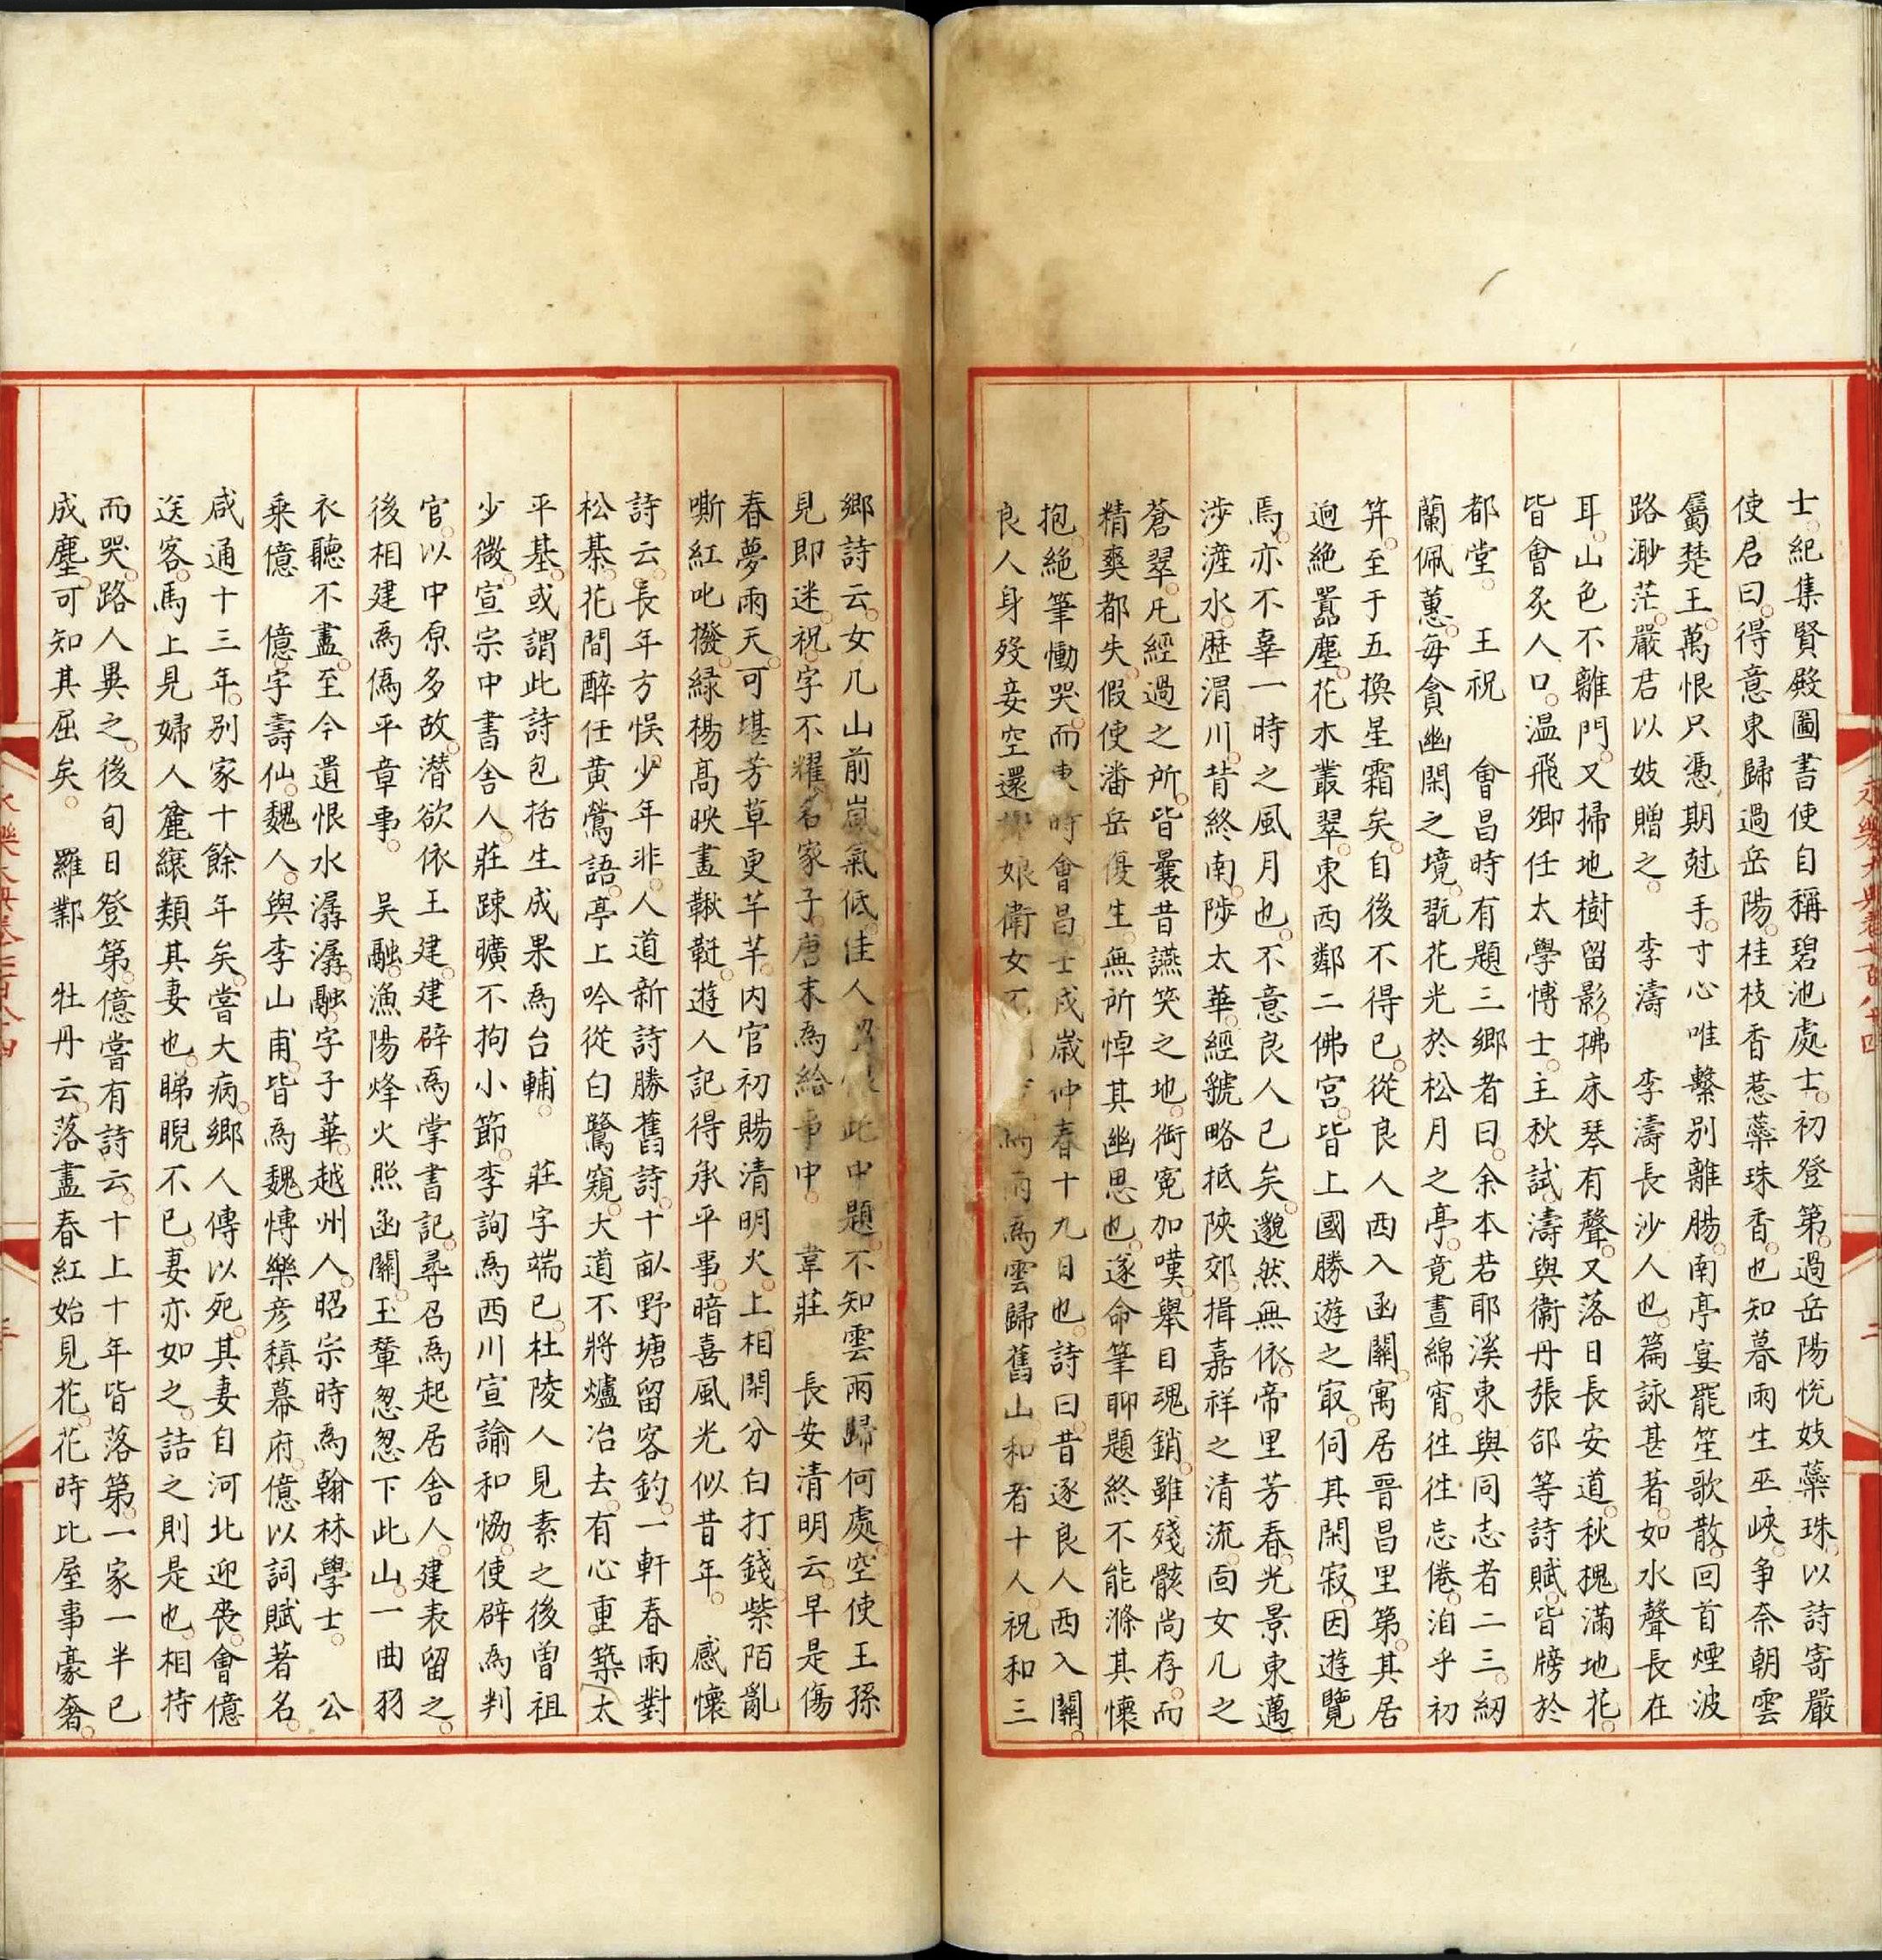 士紀集賢殿圖書使自稱碧池處士初登第過岳陽悅妓蘂珠以詩寄嚴
使君曰得意東歸過岳陽桂枝香惹蘂珠香也知暮雨生巫峽争奈朝雲
屬楚王萬恨只憑期尅手寸心唯繫別離腸南亭宴罷笙歌散回首煙波
路渺茫嚴君以妓贈之 李濤 李濤長沙人也篇詠甚著如水聲長在
耳山色不離門又掃地樹留影拂床琴有聲又落日長安道秋槐滿地花
皆會炙人口温飛卿任太學博士主秋試濤與衛丹張郃等詩賦皆牓於
都堂 王祝 會昌時有題三鄉者曰余本若耶溪東與同志者二三紉
蘭佩蕙每貪幽閑之境翫花光於松月之亭竟晝綿宵徃徃忘倦洎乎初
筓至于五換星霜矣自後不得已從良人西入函關寓居晋昌里第其居
逈絶囂塵花木叢翠東西鄰二佛宫皆上國勝遊之㝡伺其閑寂因遊覽
焉亦不辜一時之風月也不意良人已矣邈然無依帝里芳春光景東邁
涉滻水歴渭川背終南陟太華經虢略抵陝郊揖嘉祥之清流面女几之
蒼翠凡經過之所皆曩昔讌笑之地銜寃加嘆舉目魂銷雖殘骸尚存而
精爽都失假使潘岳復生無所悼其幽思也遂命筆聊題終不能滌其懷
抱絶筆慟哭而東時會昌壬戌歲仲春十九日也詩曰昔逐良人西入關
良人身歿妾空還 娘衛女不 雨爲雲歸舊山和者十人祝和三
鄉詩云女几山前嵐氣低佳人 此中題不知雲雨歸何處空使王孫
見即迷祝字不耀名家子唐末爲給事中 韋莊 長安清明云早是傷
春夢雨天可堪芳草更芊芊内官初賜清明火上相閑分白打錢紫陌亂
嘶紅叱撥緑楊髙映畫鞦韆遊人記得承平事暗喜風光似昔年 感懷
詩云長年方悮少年非人道新詩勝舊詩十畝野塘留客釣一軒春雨對
松棊花間醉任黄鶯語亭上吟從白鷺窺大道不將爐冶去有心重築太
平基或謂此詩包括生成果爲台輔 莊字端已杜陵人見素之後曾祖
少微宣宗中書舍人莊踈曠不拘小節李詢爲西川宣諭和恊使辟爲判
官以中原多故潜欲依王建建辟爲掌書記尋召爲起居舍人建表留之
後相建爲僞平章事 吴融漁陽烽火照函關玉輦怱怱下此山一曲羽
衣聽不盡至今遺恨水潺潺融字子華越州人昭宗時爲翰林學士 公
乗億 億字壽仙魏人與李山甫皆爲魏愽樂彦禛幕府億以詞賦著名
咸通十三年别家十餘年矣嘗大病鄉人傳以死其妻自河北迎喪會億
送客馬上見婦人麄縗類其妻也睇睨不已妻亦如之詰之則是也相持
而哭路人異之後旬日登第億嘗有詩云十上十年皆落第一家一半已
成塵可知其屈矣 羅鄴 牡丹云落盡春紅始見花花時比屋事豪奢